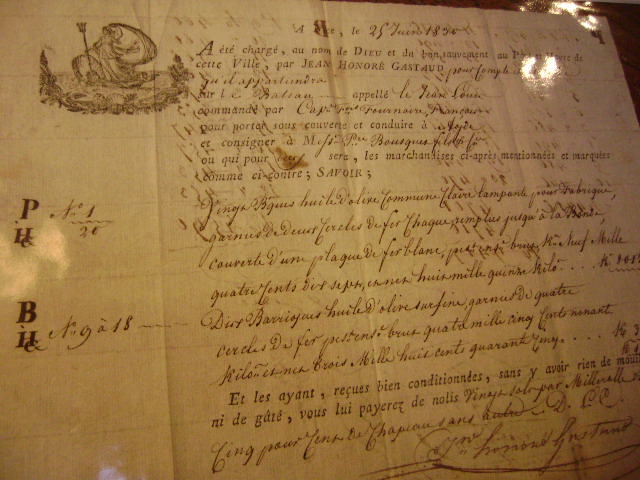 A Nice, le 25 Juin 1830
A été chargé, au nom de DIEU et du bon sauvement au Port et Havre de
cette Ville, par JEAN HONORÉ GASTAUD pour compte
qu'il appartiendra
sur le Bateau appellé le Jean Louis
commandé par Cap.ne Fournaire, Français
pour porter sous couverte et conduire à
et consigner à Mess.rs Bousquet fils
ou qui pour eux sera, les marchandises ci-après mentionnées et marquées
comme ci-contre; SAVOIR;
P
H&C
N.o 1
20
Vingt Bques huile d'olive Commune Claire lampante pour fabrique,
garnies de deux Cercles de fer Chaque, remplies jusqu'à la Bonde,
couverte d'une plaque de fer blanc, pest ensle brut Kes Neuf Mille
quatre Cents dix sept, et net huit mille quinze kilo. . . . K. 8015
B
H&
N.os 9 à 18
Dix Barriques huile d'olive surfine, garnies de quatre
cercles de fer pest ensle brut quatre mille cinq Cents nonant
Kilo. et net trois Mille huit cents quarant Cinq . . . . K.
Et les ayant, reçues bien conditionnées, sans y avoir rien de mouillé
ni de gâté, vous lui payerez de nolis Vingt sols par Millerolle
Cinq pour Cent de Chapeau sans autre. D. C. C.
Jean honoré Gastaud